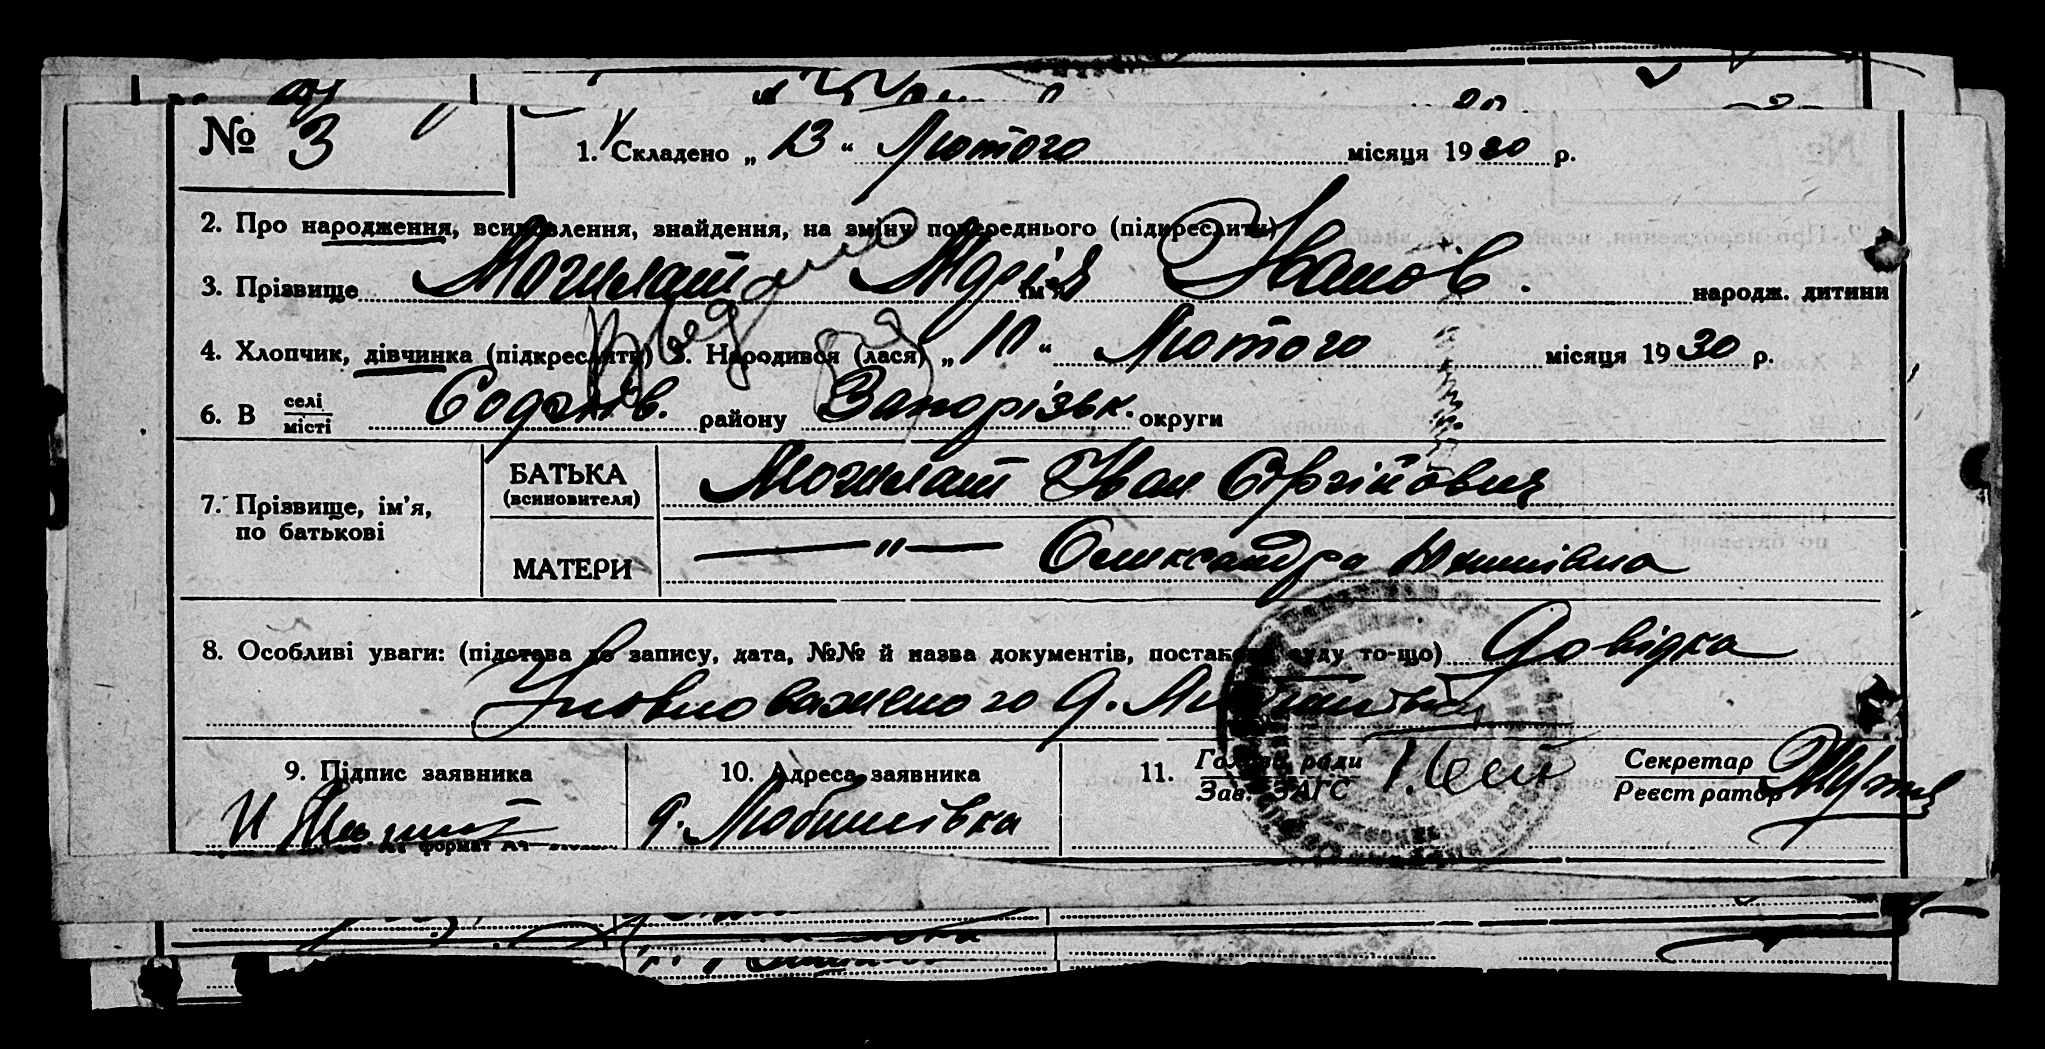 № 3
1. Складено „ 13 “ Лютого місяця 1930 р.
2. Про народження, всиновлення, знайдення, на зміну попереднього (підкреслити)
3. Прізвище Могилат Марія ім'я Іванов. народж. дитини
4. Хлопчик, дівчинка (підкреслити) 5. Народився (лася) „ 10 “ Лютого місяця 1930 р.
6. В селі місті району Запорізьк. округи
7. Прізвище, ім'я, по батькові
БАТЬКА (всиновителя) Могилат Іван Сергійович
МАТЕРИ — " — Олександра
8. Особливі уваги: (підстава до запису, дата, №№ й назва документів, постанова суду то-що) Довідка
Уповноваженого д.
9. Підпис заявника
10. Адреса заявника
11. Голова ради Зав. ЗАГС
Секретар Реєстратор
И
д. Любимівка